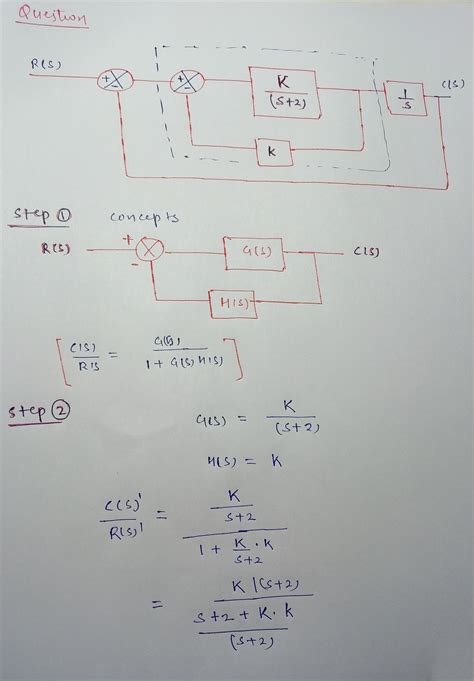 Question
R(S) + - + - K/(S+2) 1/S C(S)
k
Step ① concepts
R(S) + - G(S) C(S)
H(S)
[ C(S)/R(S = G(S)/1 + G(S) H(S) ]
Step ② G(S) = K/(S+2)
H(S) = K
C(S)'/R(S)' = K/S+2 / 1 + K/S+2 · K
= K/(S+2) / S+2 + K·k/(S+2)